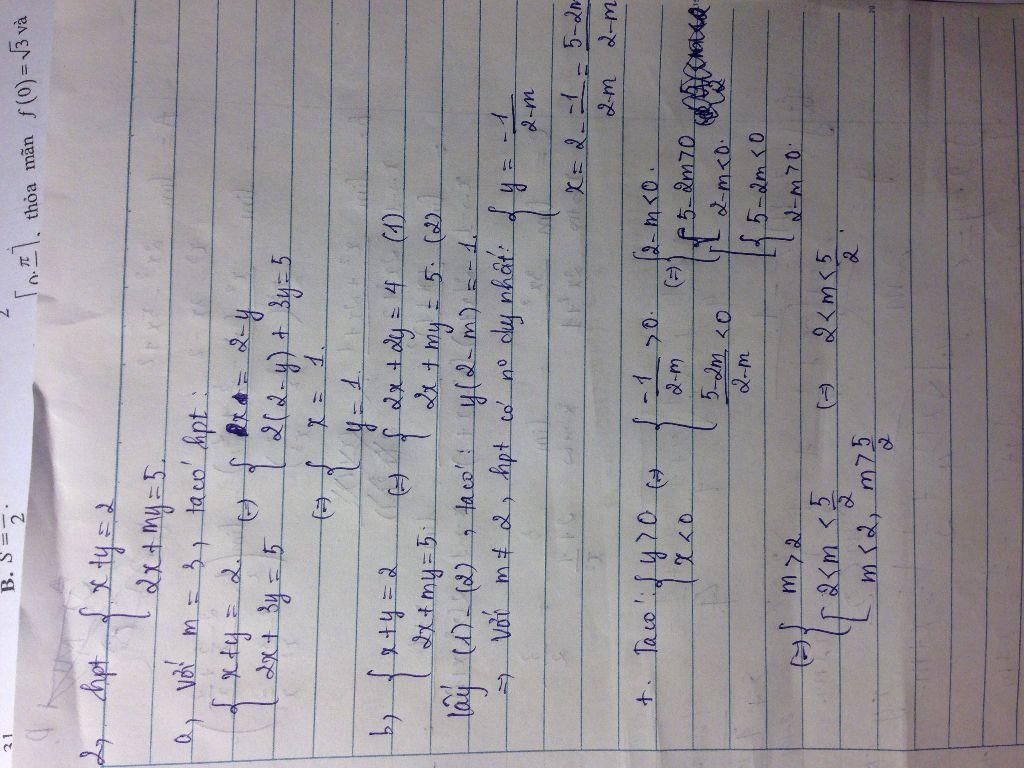 31
B. S = —/2.
2
[0; π/—], thỏa mãn f(0) = √3 và
2, hpt { x + y = 2
2x + my = 5.
a, Với m = 3, ta có hpt:
{ x + y = 2 (=) { x = 2 - y
2x + 3y = 5 2(2 - y) + 3y = 5
(=) { x = 1.
y = 1.
b, { x + y = 2 (=) { 2x + 2y = 4 (1)
2x + my = 5. 2x + my = 5. (2)
Lấy (1) - (2), ta có: y(2 - m) = -1.
=> Với m ≠ 2, hpt có nº duy nhất: { y = -1/2-m
x = 2 - -1/2-m = 5-2m/2-m
+. Ta có: { y > 0 (=) { -1/2-m > 0. (=) { 2-m < 0.
x < 0 5-2m/2-m < 0 [ { 5-2m > 0
2-m < 0.
{ 5-2m < 0
2-m > 0.
(=) { m > 2
[ 2 < m < 5/2 (=) 2 < m < 5/2
m < 2, m > 5/2